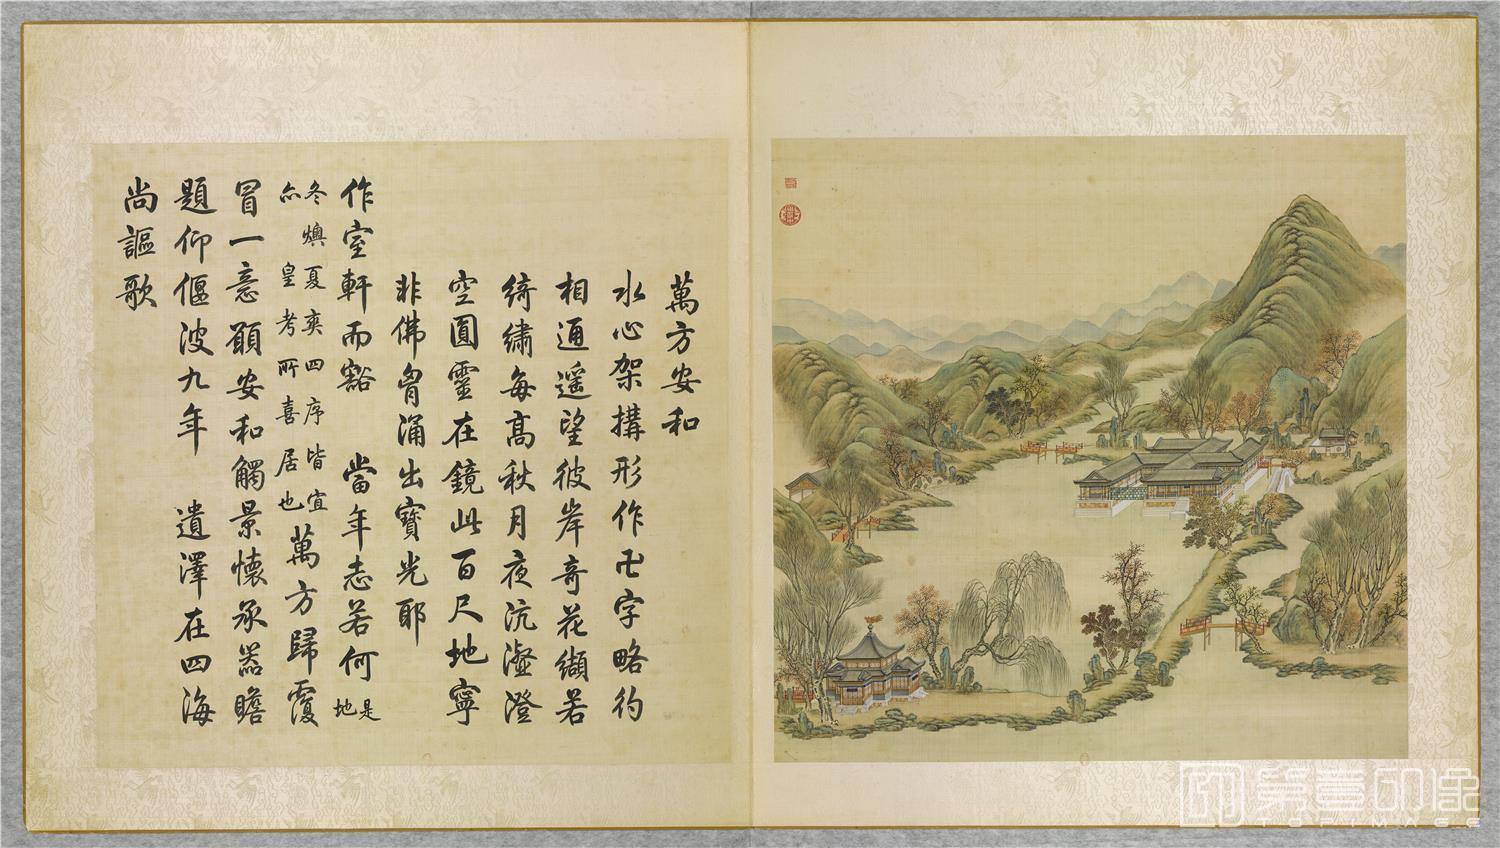 萬方安和
水心架搆形作卍字略彴
相通遥望彼岸奇花纈若
綺繡每高秋月夜沆瀣澄
空圓靈在鏡此百尺地寧
非佛胷涌出寶光耶
作室軒而豁 當年志若何是地
冬燠夏爽四序皆宜
亦 皇考所喜居也萬方歸覆
冒一意願安和觸景懷承器瞻
題仰偃波九年 遺澤在四海
尚謳歌
第壹印像
TOPIMAGE